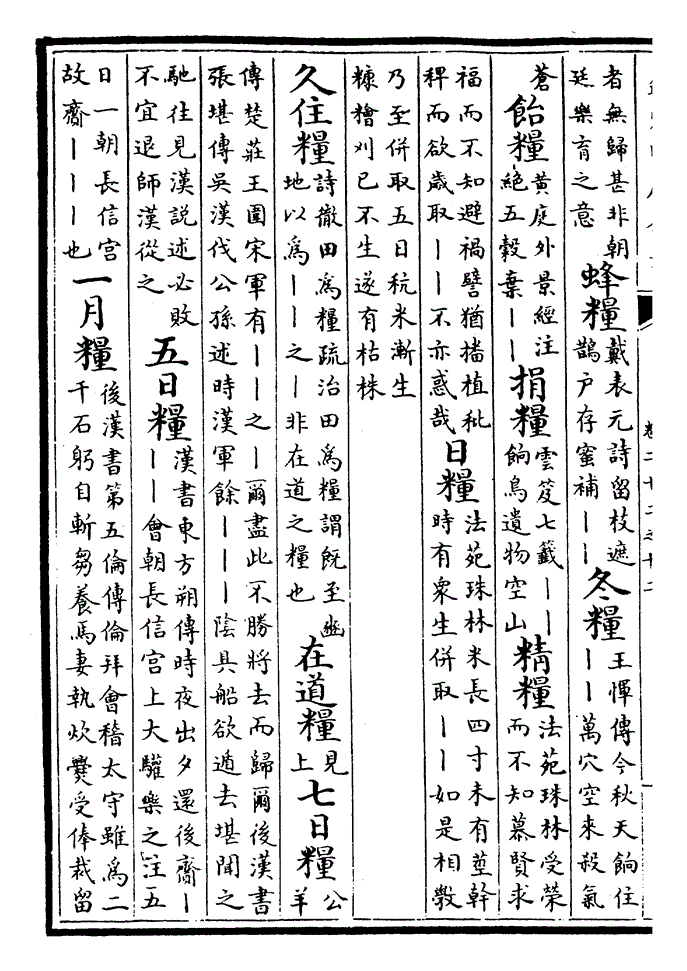 者無歸甚非朝
廷樂育之意
蜂糧
戴表元詩留枝遮
鵲戶存蜜補——
冬糧
王惲傳今秋天餉住
——萬穴空來殺氣
蒼
飴糧
黃庭外景經注
絶五穀棄——
捐糧
雲笈七籤——
餉鳥遺物空山
精糧
法苑珠林受榮
而不知慕賢求
福而不知避禍譬猶播植秕
稗而欲歲取——不亦惑哉
日糧
法苑珠林米長四寸未有莖幹
時有衆生併取——如是相斅
乃至併取五日秔米漸生
糠糩刈已不生遂有枯株
久住糧
詩徹田爲糧疏治田爲糧謂旣至豳
地以爲——之—非在道之糧也
在道糧
見
上
七日糧
公
羊
傳楚莊王圍宋軍有——之—爾盡此不勝將去而歸爾後漢書
張堪傳吳漢伐公孫述時漢軍餘———陰具船欲遁去堪聞之
馳往見漢說述必敗
不宜退師漢從之
五日糧
漢書東方朔傳時夜出夕還後齎—
——會朝長信宫上大驩樂之注五
日一朝長信宫
故齎———也
一月糧
後漢書第五倫傳倫拜會稽太守雖爲二
千石躬自斬芻養馬妻執炊爨受俸裁留